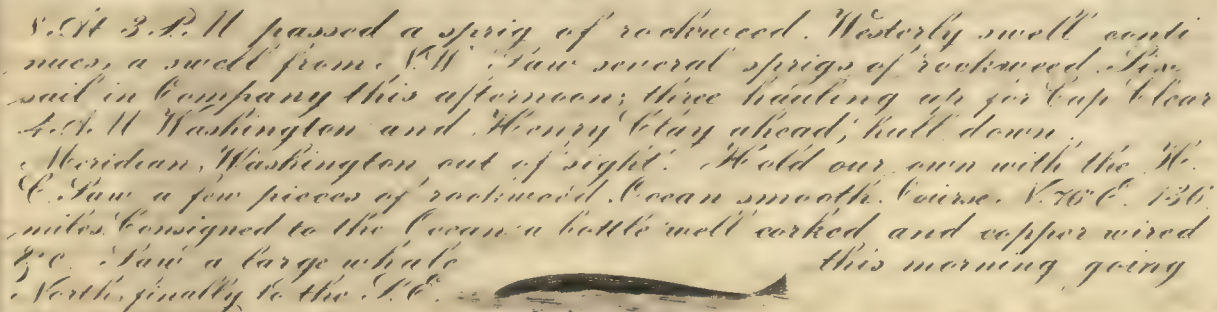 8. At 3 P.M passed a sprig of rockweed. Westerly swell conti
nues, a swell from N.W Saw several sprigs of rockweed Six
sail in Company this afternoon; three hauling up for Cap Clear
4. A. M Washington and Henry Clay ahead; hull down.
Meridian, Washington out of sight. Hold our own with the H.
C. Saw a few pieces of rockweed. Ocean smooth. Course. N. 76 E. 136
miles. Consigned to the Ocean a bottle well corked and copper wired
&c. Saw a large whale this morning going
North, finally to the S. E.